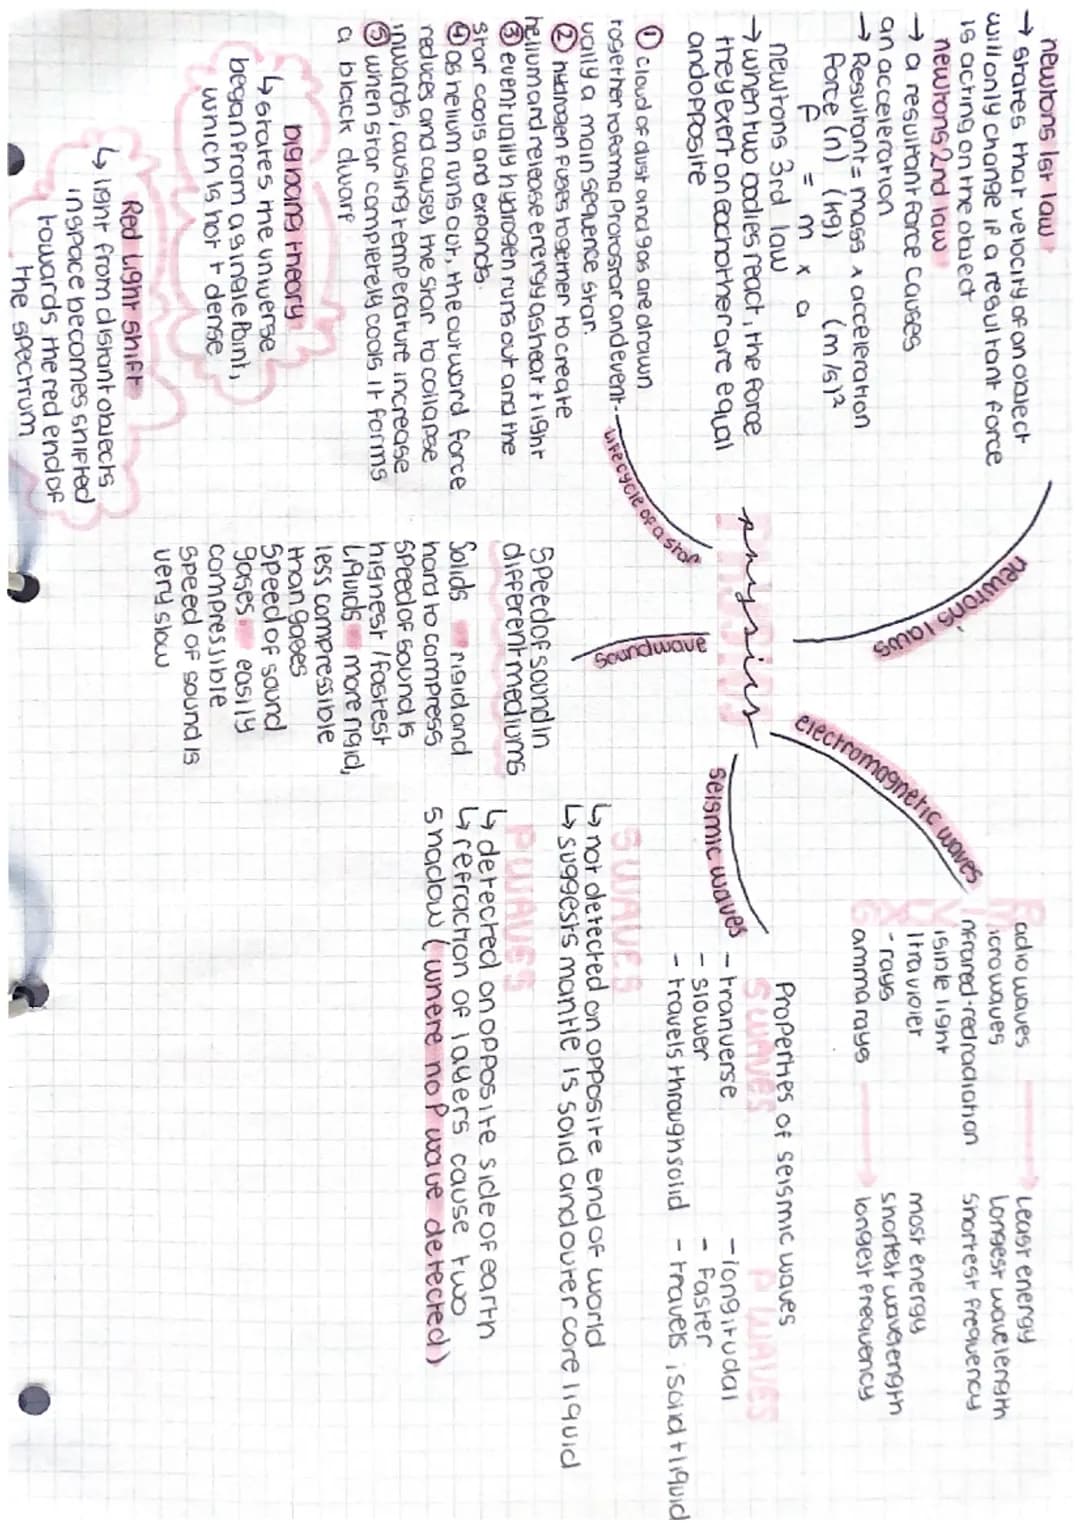 newtons 1st law
→ states that velocity of an object
will only change if a resultant force
is acting on the object
newtons 2nd law
→ a resultant force causes
an acceleration
→ Resultant = mass x acceleration
force (n) (kg) (m/s)²
F = m x a
newtons 3rd law
→ when two bodies react, the force
they exert on eachother are equal
and opposite
newtons laws
electromagnetic waves
Radio waves
Microwaves
Infrared · red radiation
Visible light
Ultraviolet
X - rays
Gamma rays
Least energy
Longest wavelength
Shortest frequency
most energy
shortest wavelength
longest frequency
physics
PHYSICS
lifecycle of a star
① cloud of dust and gas are drawn
together to form a Protostar and event-
ually a main sequence star.
② hydrogen fuses together to create
helium and release energy as heat + light
③ eventually hydrogen runs out and the
star cools and expands.
④ as helium runs out, the outward force
reduces and causes the star to collapse
inwards, causing temperature increase
⑤ when star completely cools it forms
a black dwarf
big bang theory
↳ states the universe
began from a single Point,
which is hot + dense
Red Light shift
↳ light from distant objects
in space becomes shifted
towards the red end of
the spectrum
Soundwave
Speed of sound in
different mediums
Solids rigid and
hard to compress
speed of sound is
highest / fastest
Liquids more rigid,
less compressible
than gases
speed of sound
gasses. easily
compressible
speed of sound is
very slow
seismic waves
Properties of seismic waves
S WAVES
- tranverse
- slower
- travels through solid
P WAVES
- longitudal
- faster
- travels isolid + liquid
S WAVES
↳ not detected on opposite end of world
↳ suggests mantle is solid and outer core liquid
P WAVES
↳ detected on opposite side of earth
↳ refraction of layers cause two
shadow (where no P wave detected)